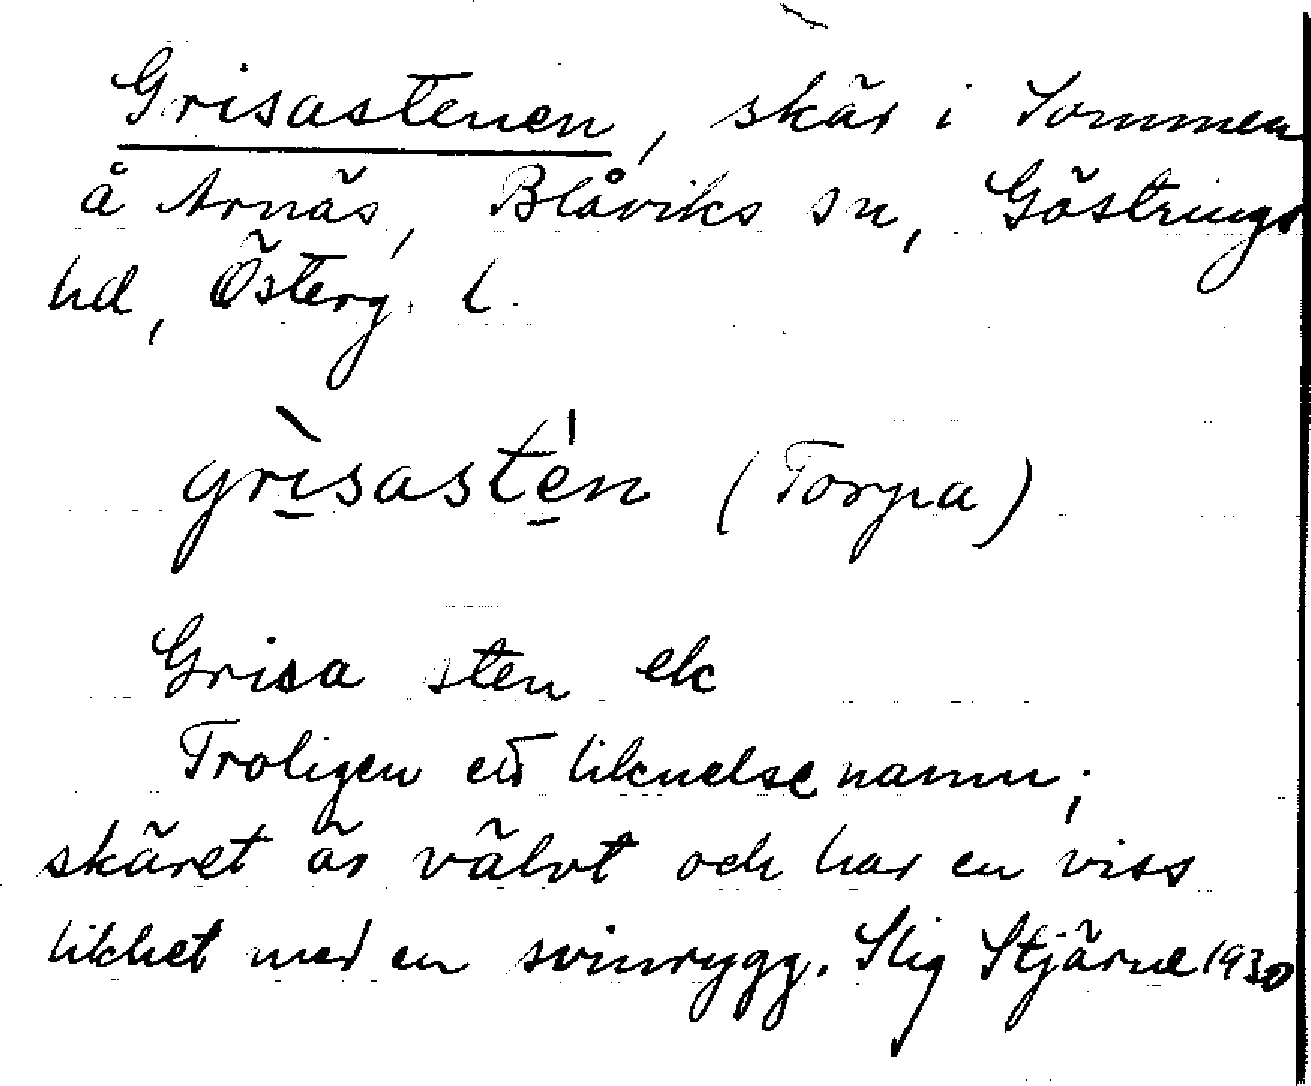 Grisastenen, skär i Sommen
å Arnäs, Blåviks sn, Göstrings
hd, Österg. l.
grìsasté́n (Torpa)
Grisa sten ek
Troligen ett liknelsenamn;
skäret är välvt och har en viss
likhet med en svinrygg. Stig Stjärne 1930